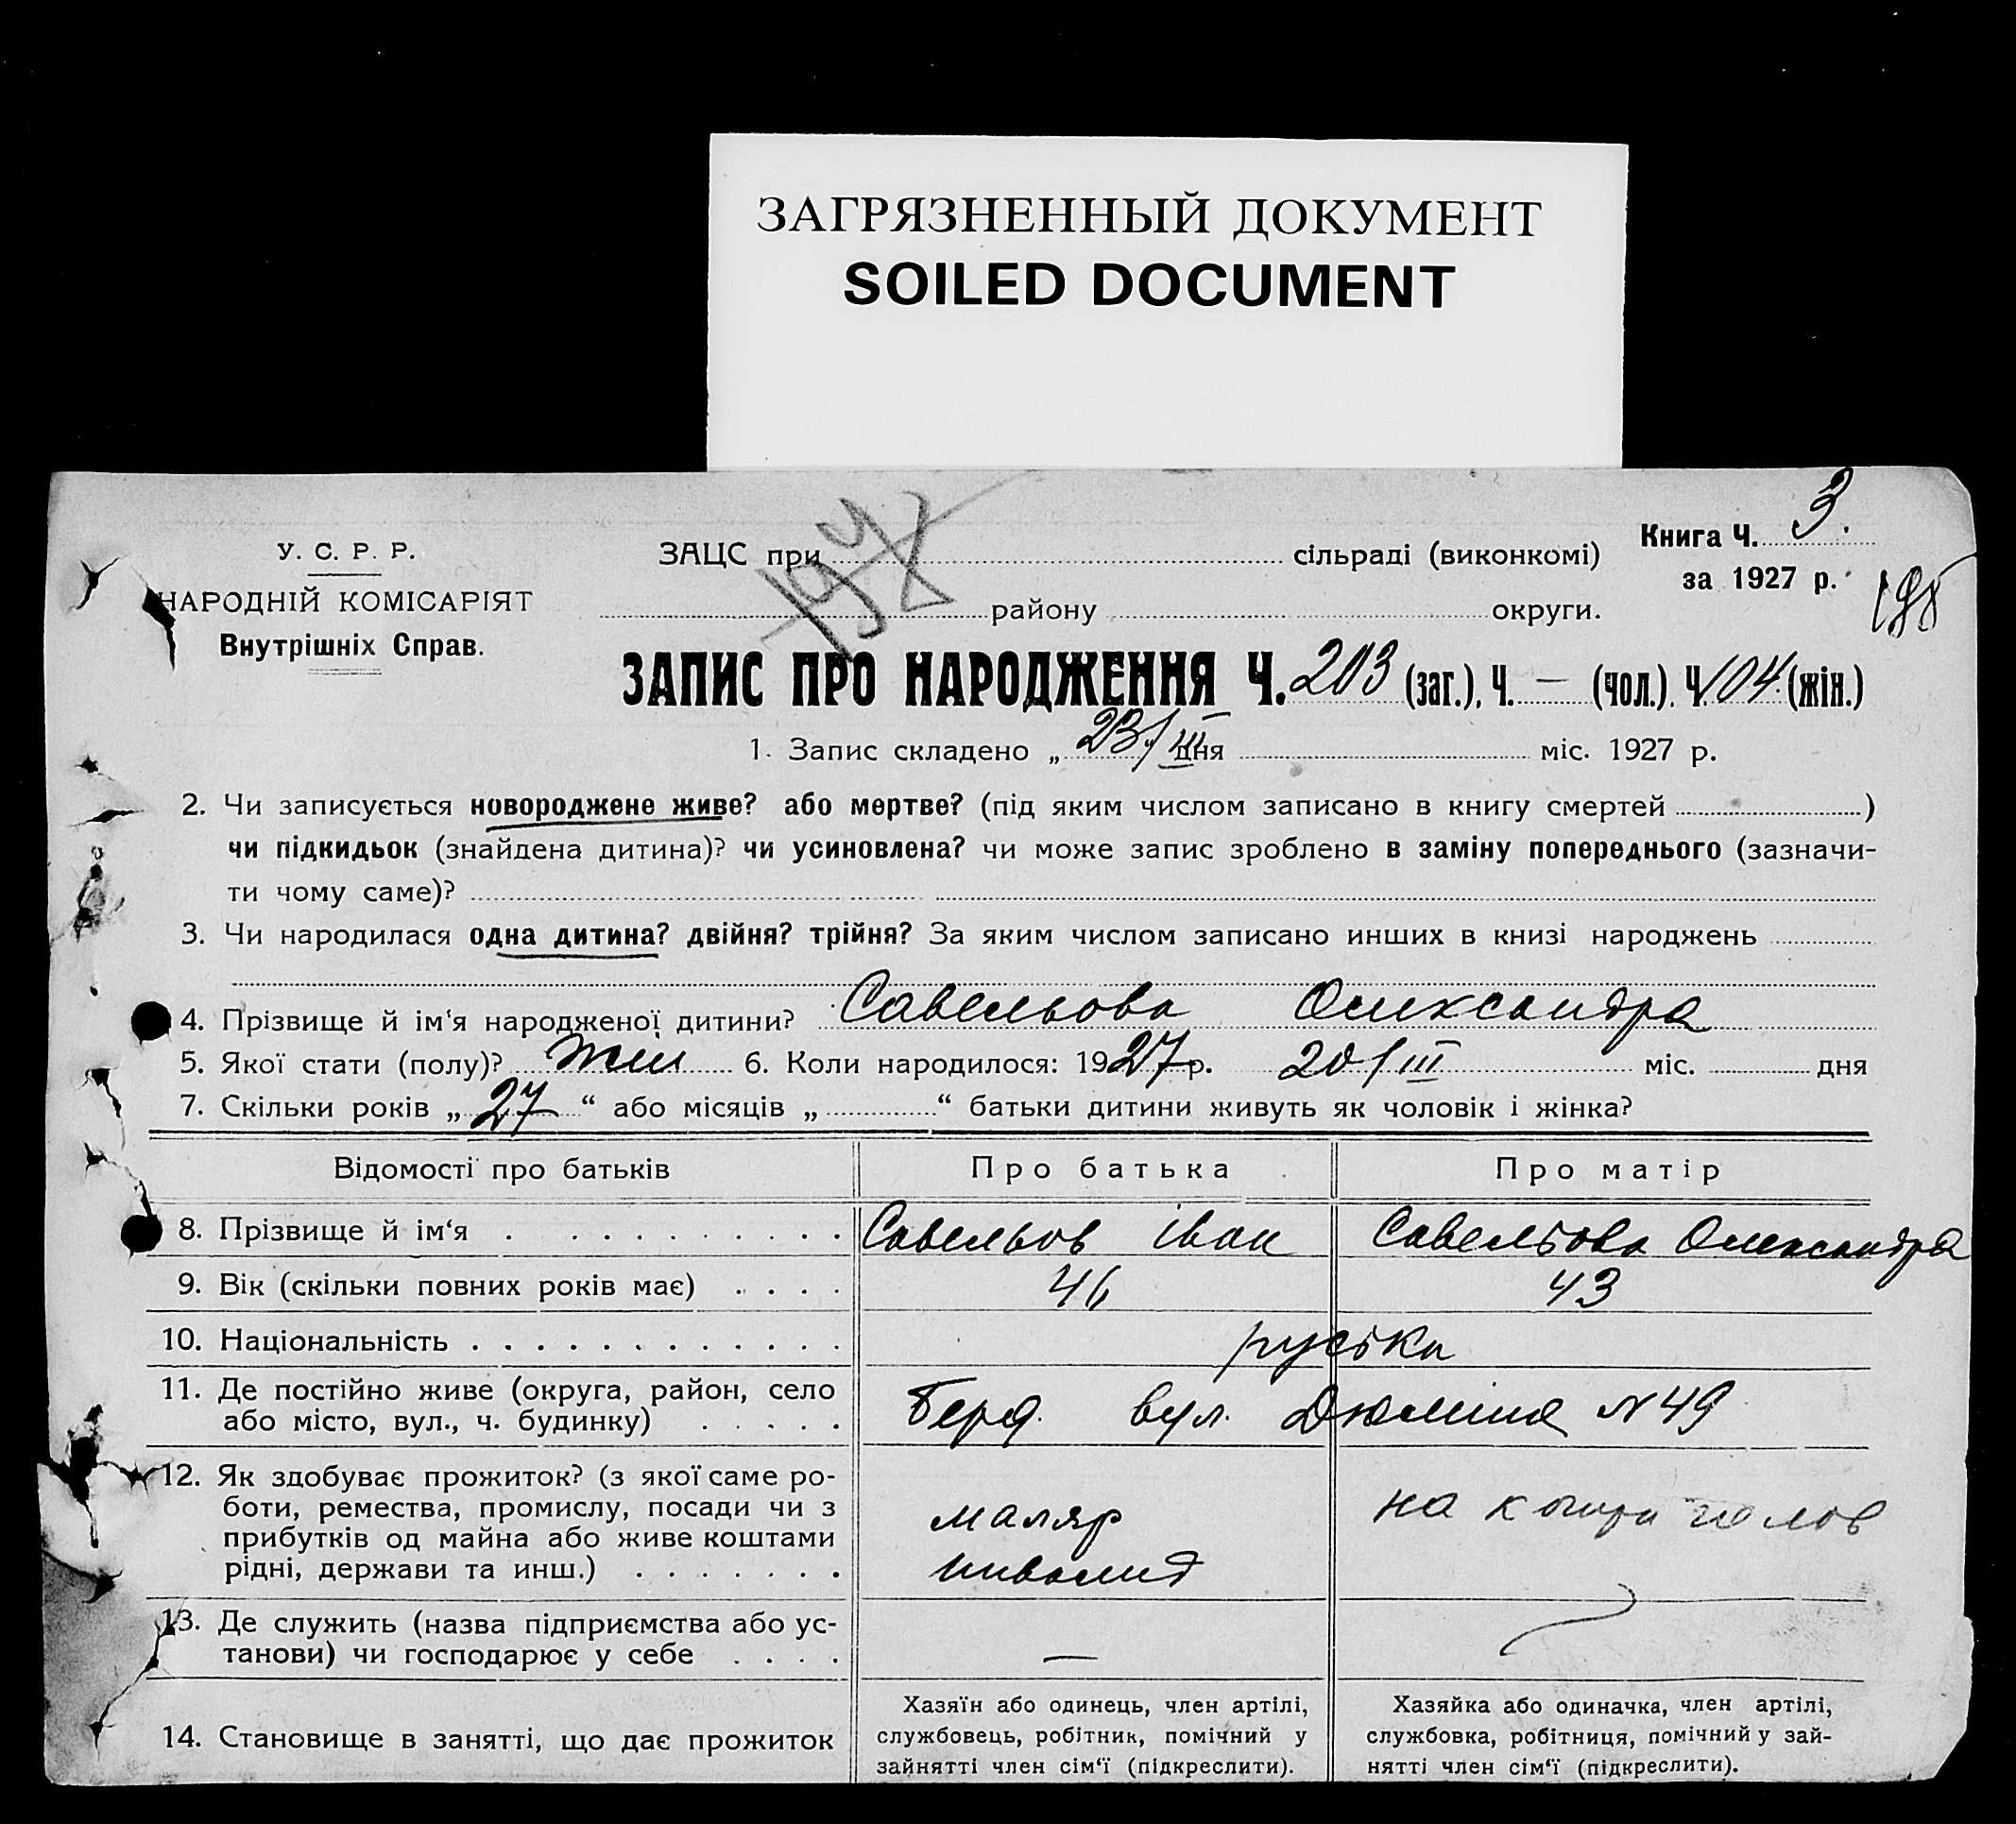 ЗАГРЯЗНЕННЫЙ ДОКУМЕНТ
SOILED DOCUMENT
У. С. Р. Р.
НАРОДНІЙ КОМІСАРІЯТ
Внутрішніх Справ.
ЗАЦС при сільраді (виконкомі)
району округи.
Книга Ч. 3.
за 1927 р.
198
ЗАПИС ПРО НАРОДЖЕННЯ Ч. 203 (заг.), Ч. — (чол.). Ч. 104 (жін.)
1. Запис складено „ 23/III дня міс. 1927 р.
2. Чи записується новороджене живе? або мертве? (під яким числом записано в книгу смертей )
чи підкидьок (знайдена дитина)? чи усиновлена? чи може запис зроблено в заміну попереднього (зазначи-
ти чому саме)?
3. Чи народилася одна дитина? двійня? трійня? За яким числом записано инших в книзі народжень
4. Прізвище й ім‘я народженої дитини? Савельова Олександра
5. Якої стати (полу)? жін 6. Коли народилося: 1927 р. 20/III міс. дня
7. Скільки років „ 27 “ або місяців „ “ батьки дитини живуть як чоловік і жінка?
Відомості про батьків Про батька Про матір
8. Прізвище й ім‘я . . . . . . . . . Савельов Іван Савельова Олександра
9. Вік (скільки повних років має) . . . . 46 43
10. Національність . . . . . . . . . . . . руська
11. Де постійно живе (округа, район, село
або місто, вул., ч. будинку) . . . . . Берд. вул. Дюміна N 49
12. Як здобуває прожиток? (з якої саме ро-
боти, ремества, промислу, посади чи з
прибутків од майна або живе коштами
рідні, держави та инш.) . . . . . . .
маляр
инвалид
на кошти чолов
13. Де служить (назва підприємства або ус-
танови) чи господарює у себе . . . . —
14. Становище в занятті, що дає прожиток
Хазяїн або одинець, член артілі,
службовець, робітник, помічний у
зайнятті член сім‘ї (підкреслити).
Хазяйка або одиначка, член артілі,
службовка, робітниця, помічний у зай-
нятті член сім‘ї (підкреслити).